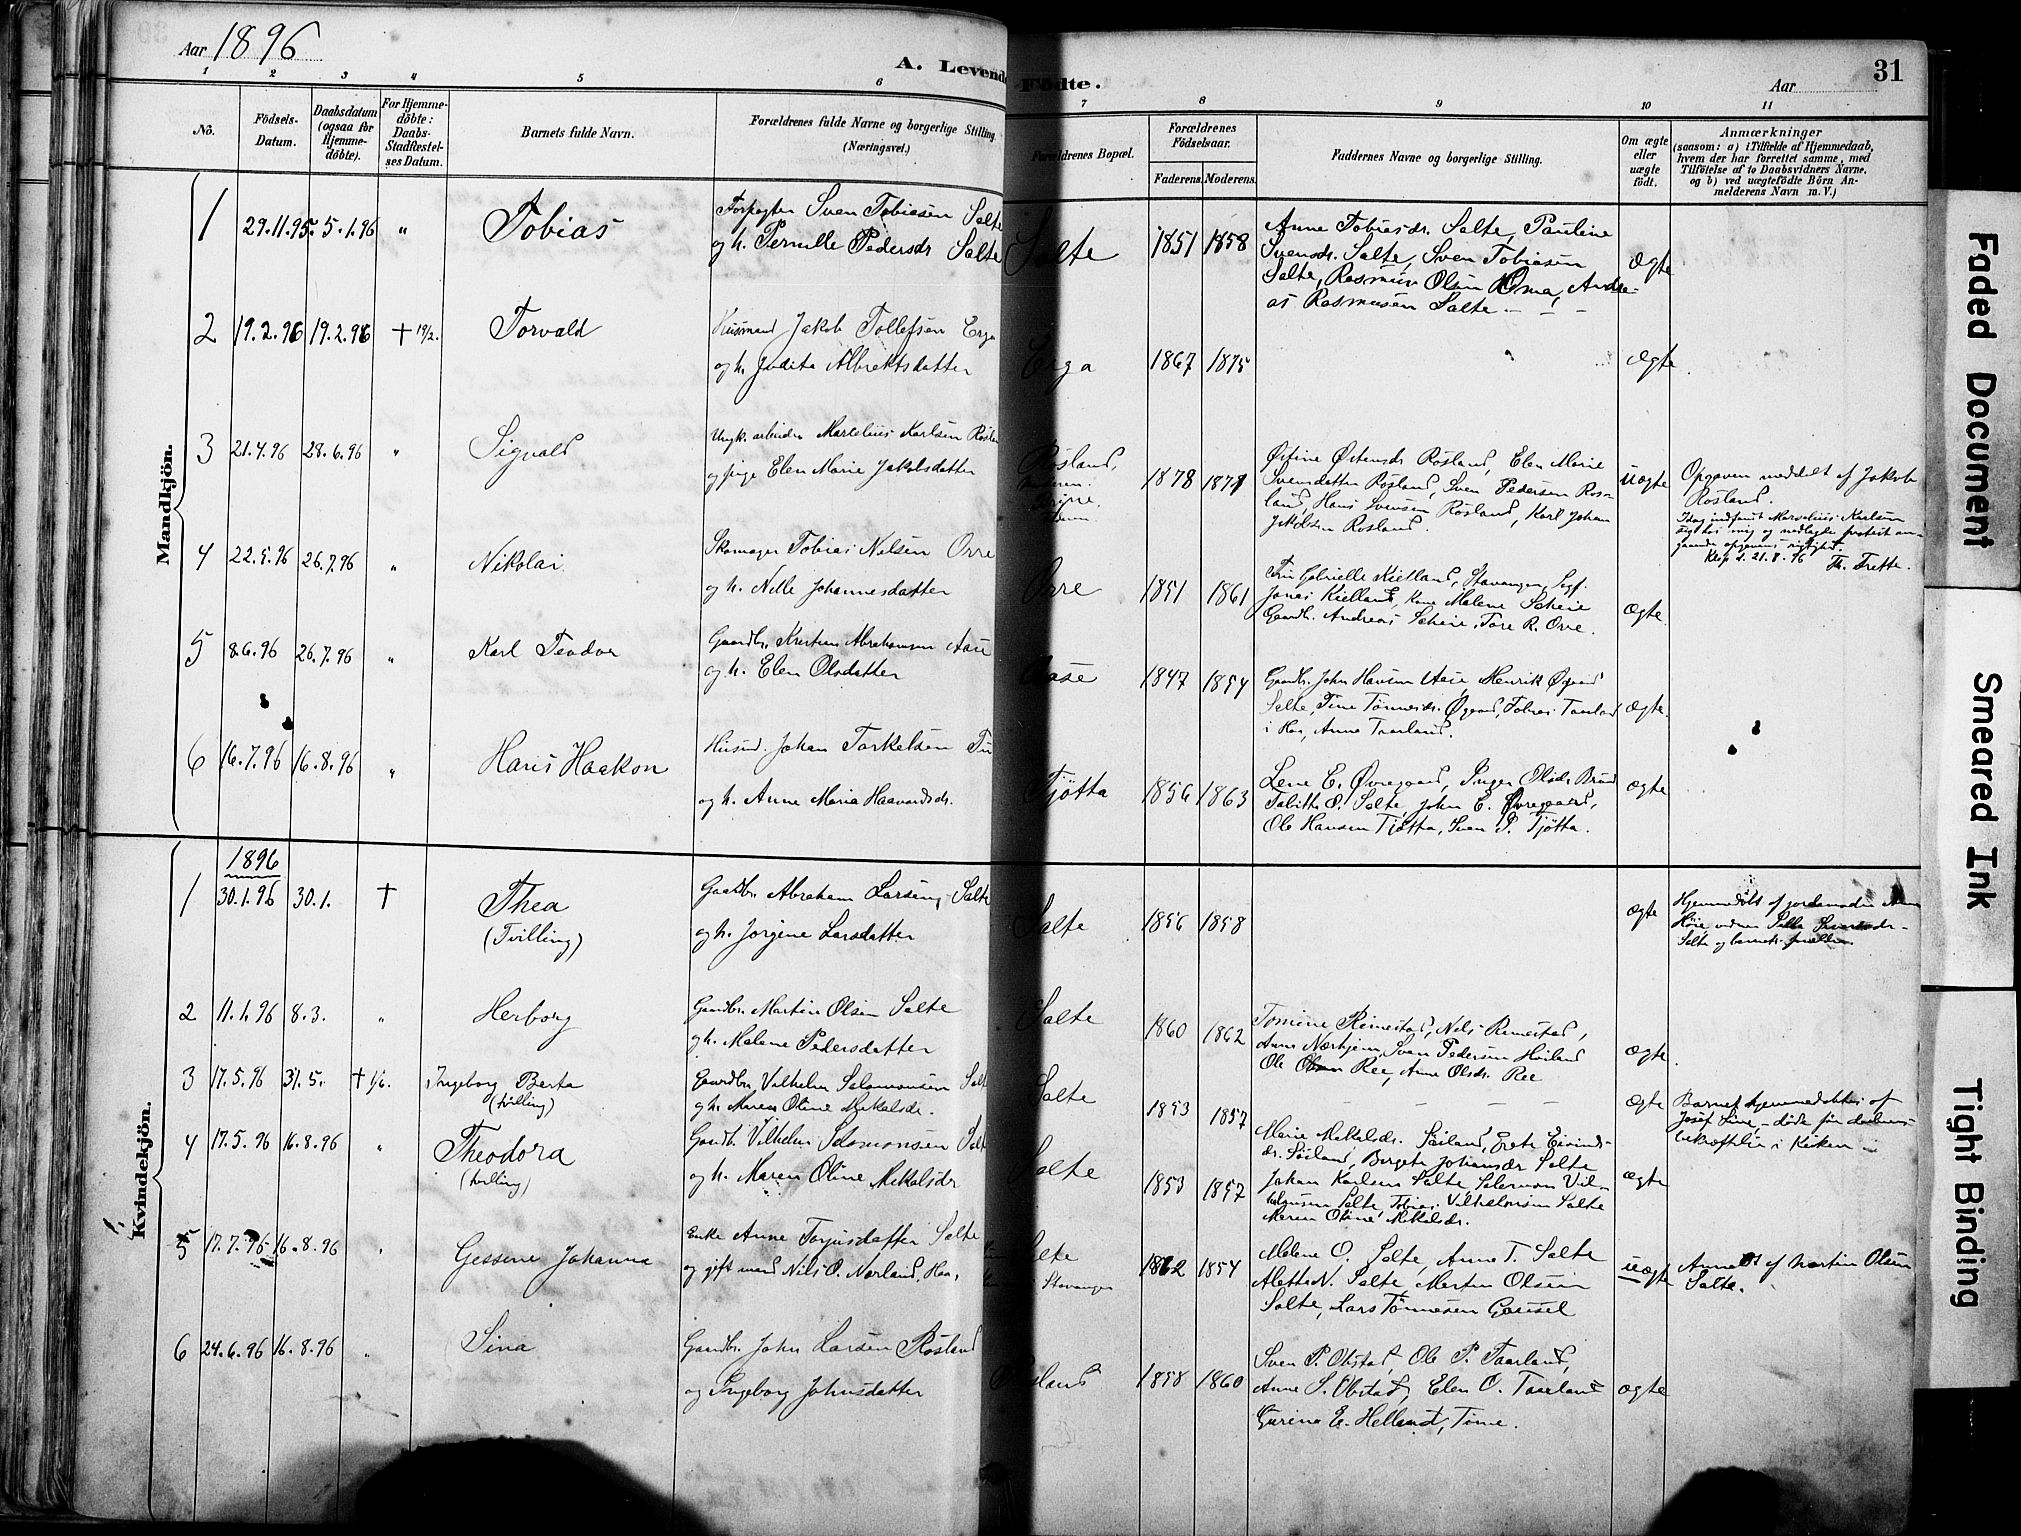 Aar 1896
A. Levende Födte.
Aar
31
1 2 3 4 5 6 7 8 9 10 11
No.
Födsels-Datum.
Daabsdatum (ogsaa for Hjemme-döbte).
For Hjemme-döbte: Daabs-Stadfæstel-ses Datum.
Barnets fulde Navn.
Forældrenes fulde Navne og borgerlige Stilling (Næringsvei.)
Forældrenes Bopæl.
Forældrenes Födselsaar.
Faderens. Moderens.
Faddernes Navne og borgerlige Stilling.
Om ægte eller uægte födt.
Anmærkninger
(saasom: a) i Tilfælde af Hjemmedaab,
hvem der har forrettet samme, med
Tilföielse af to Daabsvidners Navne,
og b) ved uægtefödte Börn An-
melderens Navn m. V.)
Mandkjön.
1 29.11.95. 5.1.96 " Tobias
Forpagter Sven Tobiasen Salte
og h. Pernille Pedersdr Salte
Salte 1851 1858
Anne Tobiasdr. Salte, Pauline
Svensdr. Salte, Sven Tobiasen
Salte, Rasmus Olsen Oma, Andre-
as Rasmusen Salte - - -
ægte
2 19.2.96 19.2.96 † 19/2. Torvald
Husmand Jakob Tollefsen Erga
og h. Judita Albrektsdatter
Erga 1867 1875
ægte.
3 21.4.96 28.6.96 " Sigvald
Ungk. arbeider Marselius Karlsen
og pige Elen Marie Jakobsdatter
Rosland, 1878 1871
Østine Østensdr Rosland, Elen Marie
Svensdatter Rosland, Sven Pedersen Ros-
land, Hans Svensen Rosland, Karl Johan
Jakobsen Rosland.
uægte
Opgaven meddelt af Jakob
Rosland.
Idag indfandt Marselius Karlsen
sig hos mig og nedlagde protest an-
gaaende opgavens rigtighed.
Klep d. 21.8.96 Th. Trette.
4 22.5.96 26.7.96 " Nikolai
Skomager Tobias Nilsen Orre
og h. Nille Johannesdatter
Orre 1851 1861
Fru Gabrielle Kielland, Stavanger, Sogf.
Jonas Kielland, Kone Malene Scheie
Gaardb. Andreas Scheie, Tore R. Orre.
ægte
5 8.6.96 26.7.96 " Karl Teodor
Gaardbr. Kristian Abrahamsen
og h. Elen Olsdatter
Aase 1847 1854
Gaardbr. John Henrik Øgaard
Salte, Tine Tønnesdr. Øgaard, Tobias Taarland
i Haa, Anne Taarland.
ægte.
6 16.7.96 16.8.96 " Hans Haakon
Husmd. Johan Torkelsen
og h. Anne Maria Haavardsdr.
Tjøtta 1856 1863
Lene E. Øvregaard, Inger Olsdr. Brund
Tabitta O. Salte, John E. Øvregaard,
Ole Hansen Tjøtta, Sven P. Tjøtta.
ægte
Kvindekjön.
1896
1 30.1.96 30.1. † Thea
(Tvilling)
Gaardbr. Abraham Larsen, Salte
og h. Jorgine Larsdatter
Salte 1856 1858
ægte
Hjemmedøbt af jordemoder Anna
Salte og barnets forældre
2 11.1.96 8.3. " Herborg
Gaardbr. Martin Olsen Salte
og h. Malene Pedersdatter
Salte 1860 1862
Tomine Rimestad, Nils Rimestad,
Anne Nærheim, Sven Pedersen Høiland
Ole Ree, Anne Olsdr. Ree
ægte.
3 17.5.96 31.5. † 1/6. Ingeborg Berta
(tvilling)
Gaardbr. Vilhelm Salomonsen Salte
og h. Maren Oline Mikalsdr.
Salte 1853 1857
- - - -
ægte
Barnet hjemmedøbtes af
Josef Line, døde før daabens
bekræftelse i Kirken
4 17.5.96 16.8.96 " Theodora
(tvilling)
Gaardb. Vilhelm Salomonsen Salte
og h. Maren Oline Mikalsdr
Salte 1853 1857
Marie Mikalsdr. Søiland, Grete Eivinds-
dr. Søiland, Bergete Johansdr Salte
Johan Karlsen Salte, Salomon Vil-
helmsen Salte, Tobias Vilhelmsen Salte
Maren Oline Mikalsdr.
ægte
5 17.7.96 16.8.96 " Gessine Johanne
Enke Anne Torjusdatter Salte
og gift mand Nils O. Nærland, Haa,
Salte
Stavanger
1862 1854
Malene O. Salte, Anne T. Salte
Alette N. Salte, Martin Olsen
Salte, Lars Tønnesen Gausel
uægte
Anmeldt af Martin Olsen
Salte.
6 24.6.96 16.8.96 " Sina
Gaardbr. John Larsen Rosland
og Ingeborg Johnsdatter
Rosland 1858 1860
Sven P. Obstad, Ole P. Taarland,
Anne S. Obstad, Elen O. Taarland
Gurina E. Helland, Time.
ægte
Faded Document
Smeared Ink
Tight Binding